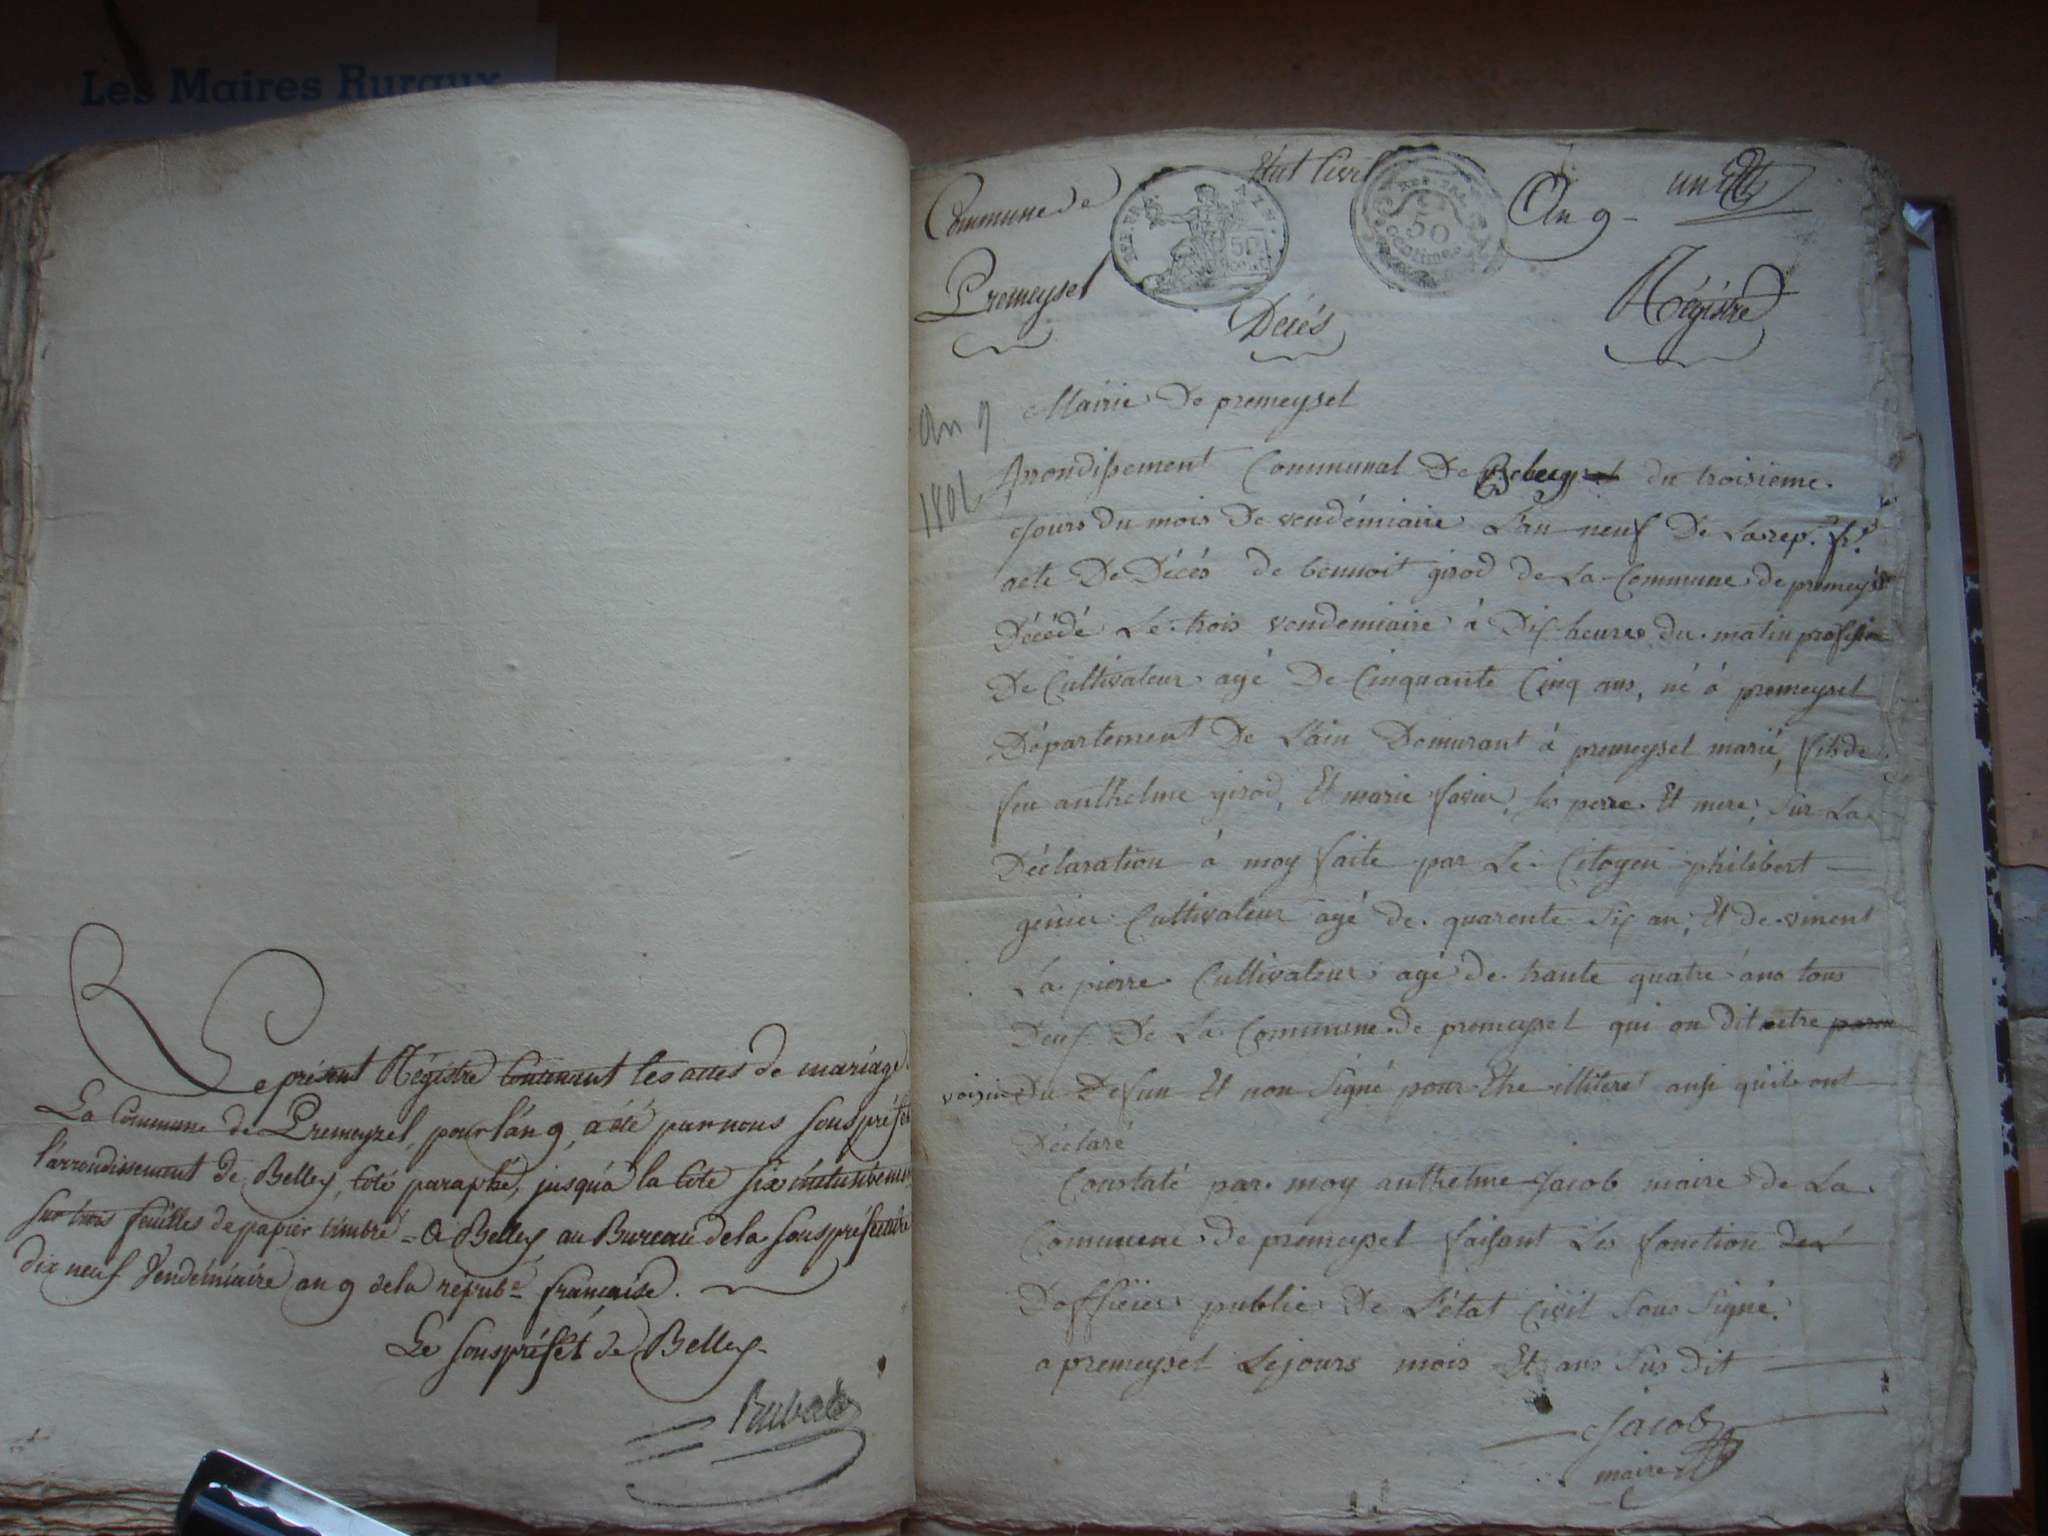 Les Maires Ruraux
Le présent Régistre contenant les actes de mariage
La Commune de Premeyzel, pour l'an 9, a été par nous souspréfet
l'arrondissement de Belley, coté paraphé, jusqu'à la cote six inclusivement
sur trois feuilles de papier timbré = A Belley au Bureau de la souspréfecture
dix neuf Vendémiaire an 9 de la répub.e française.
Le souspréfet de Belley
Commune de
Etat Civil
An 9
un
Premeysel
50
50
centimes
Décés
Régistre
an 9
1801
Mairie De premeysel
Arrondissement Communal De du troisieme
jours du mois De vendémiaire L'an neuf De La rep. fr.
acte De Décés de bennoit girod de La Commune de premeysel
Décédé Le trois vendemiaire à Dix heures du matin profession
De Cultivateur agé De Cinquante Cinq ans, né à premeysel
Département De L'ain Demurant à premeysel marié, fils de
feu anthelme girod, Et marie, ses perre Et mere, Sur La
Déclaration à moy faite par Le Citoyen philibert
genier Cultivateur agé de quarente Six an, Et de vincent
La pierre Cultivateur agé de trante quatre ans tous
Deux De La Commune de premeysel qui on dit aitre
voisin Du Defun Et non Signé pour Etre illiteré ansi quils ont
Déclaré
Constaté par moy anthelme Jacob maire de La
Commune de premeysel faisant Les fonction
D'officier public De L'état Civil Sous Signé.
a premeysel Lejours mois Et ans Sus dit
Jacob
maire